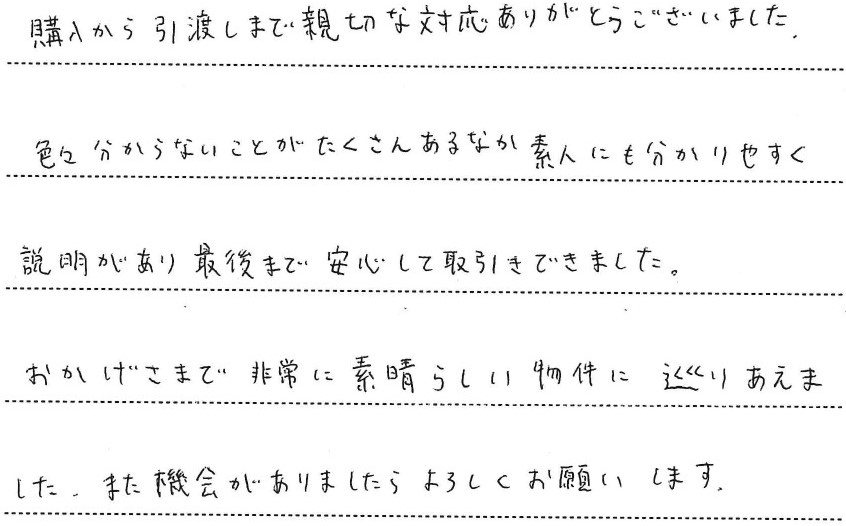 購入から引渡しまで親切な対応ありがとうございました.
色々分からないことがたくさんあるなか素人にも分かりやすく
説明があり最後まで安心して取引きできました。
おかげさまで非常に素晴らしい物件に巡りあえま
した. また機会がありましたらよろしくお願いします.